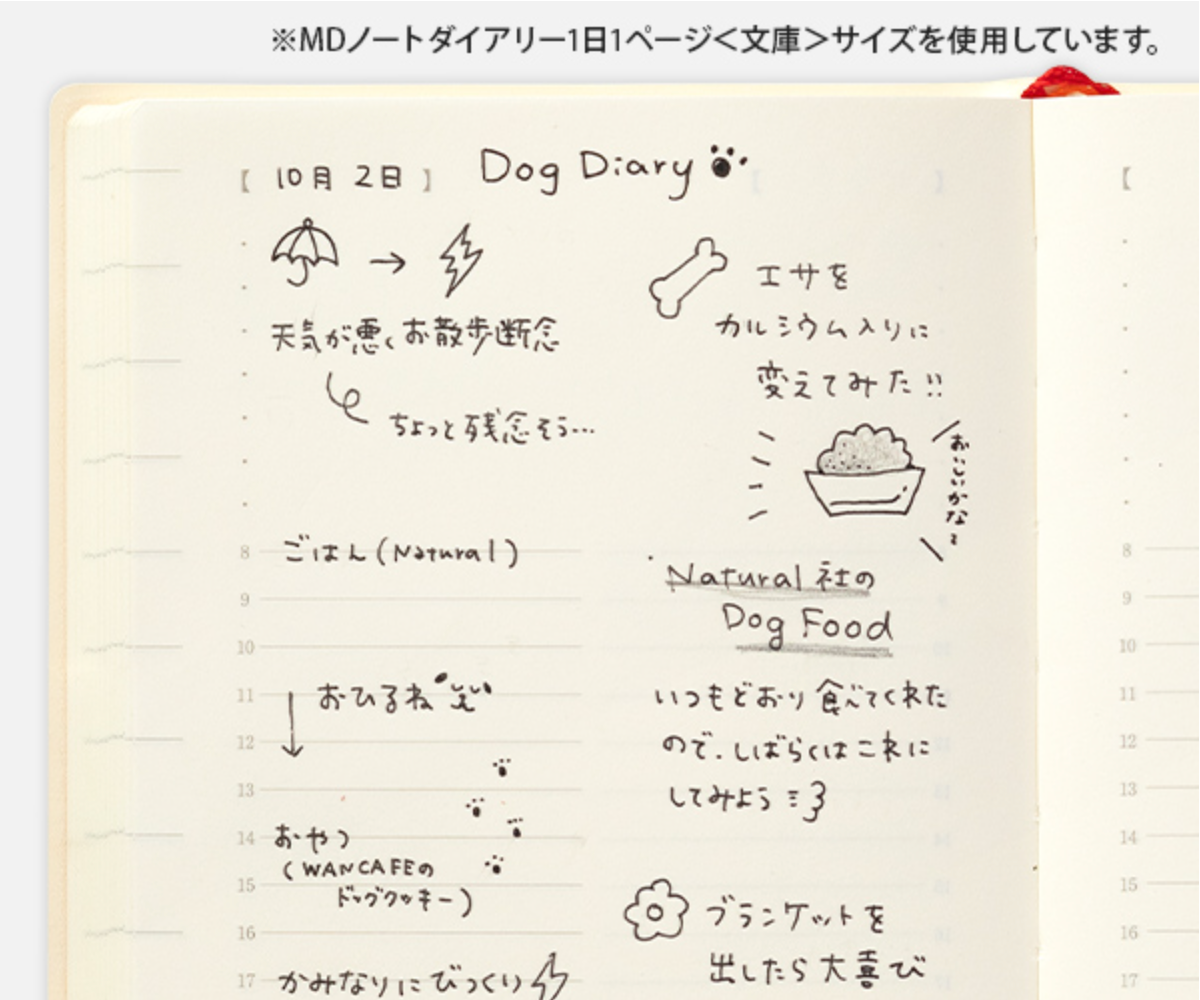 ※MDノートダイアリー1日1ページ<文庫>サイズを使用しています。
【 10月 2日 】 Dog Diary
天気が悪くお散歩断念
ちょっと残念そう…
8 ごはん(Natural)
9
10
11 おひるね
12
13
14 おやつ
(WANCAFEの
15 ドッグクッキー)
16
17 かみなりにびっくり
エサを
カルシウム入りに
変えてみた!!
おいしいかな?
Natural 社の
Dog Food
いつもどおり食べてくれた
ので、しばらくはこれに
してみよう
ブランケットを
出したら大喜び
【
8
9
10
11
12
13
14
15
16
17